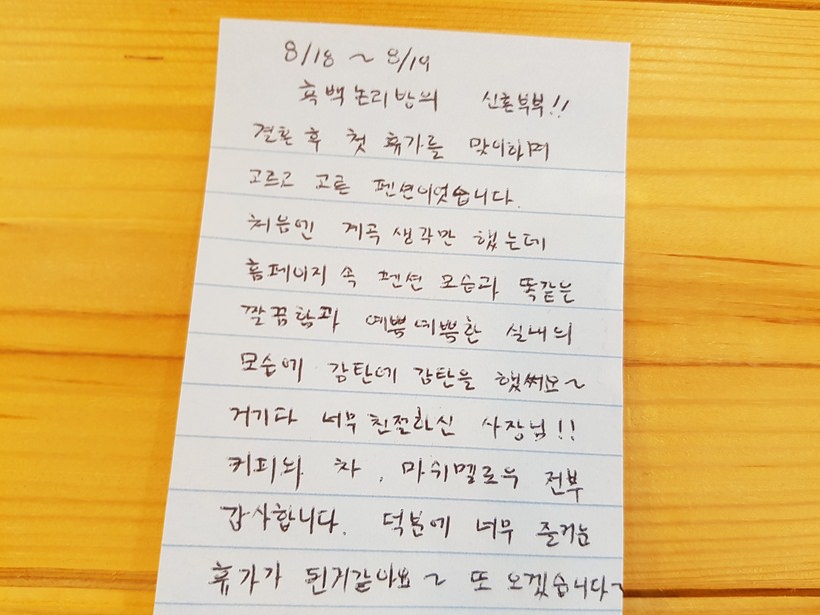 8/18 ~ 8/19
흑백논리방의 신혼부부!!
결혼 후 첫 휴가를 맞이하며
고르고 고른 펜션이었습니다.
처음엔 계곡 생각만 했는데
홈페이지 속 펜션 모습과 똑같은
깔끔함과 예쁨예쁨한 실내의
모습에 감탄에 감탄을 했써요~
거기다 너무 친절하신 사장님!!
커피와 차, 마쉬멜로우 전부
감사합니다. 덕분에 너무 즐거운
휴가가 된거같아요~ 또 오겠습니다~